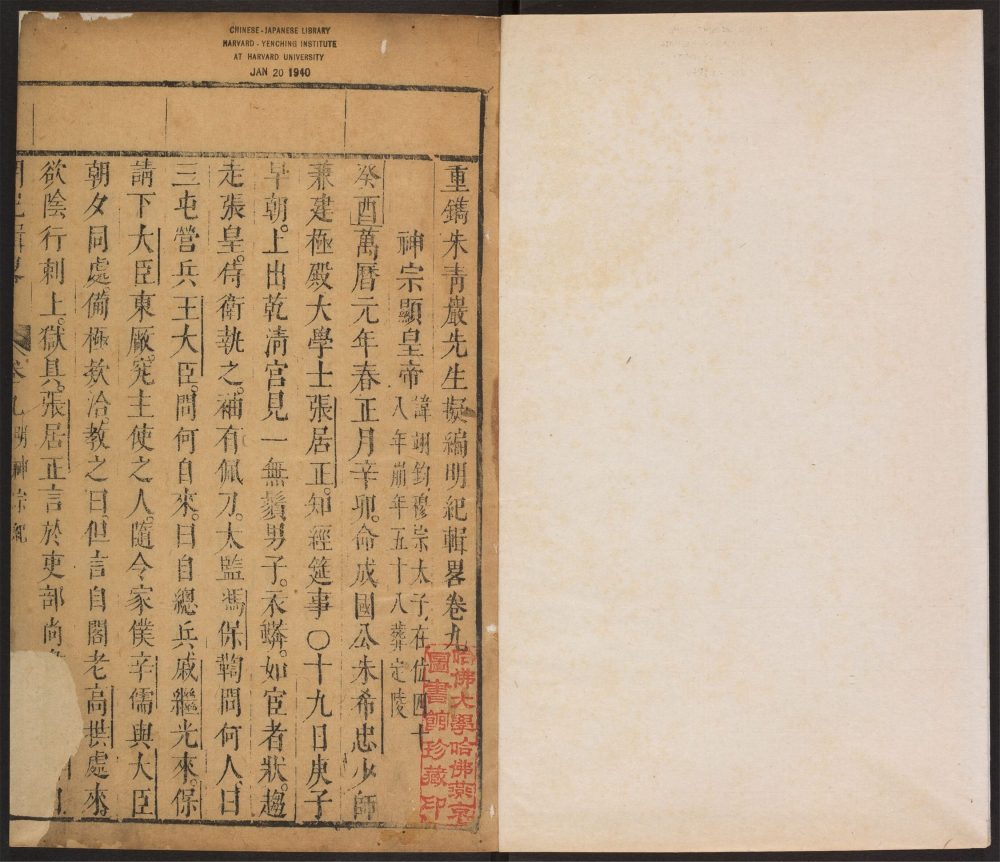 CHINESE-JAPANESE LIBRARY
HARVARD-YENCHING INSTITUTE
AT HARVARD UNIVERSITY
JAN 20 1940
重鐫朱青巖先生擬編明紀輯畧卷九
神宗顯皇帝諱翊鈞穆宗太子在位四十八年崩年五十八葬定陵
癸酉萬曆元年春正月辛卯命成國公朱希忠少師
兼建極殿大學士張居正知經筵事〇十九日庚子
早朝上出乾清宮見一無鬚男子衣蠎如宦者狀趨
走張皇侍衛執之袖有佩刀太監馮保鞫問何人曰
三屯營兵王大臣問何自來曰自總兵戚繼光來保
請下大臣東厰究主使之人隨令家僕辛儒與大臣
朝夕同處備極欵洽教之曰但言自閣老高拱處來
欲陰行刺上獄具張居正言於吏部尚
卷九明神宗紀
哈佛大學哈佛燕京
圖書館珍藏印